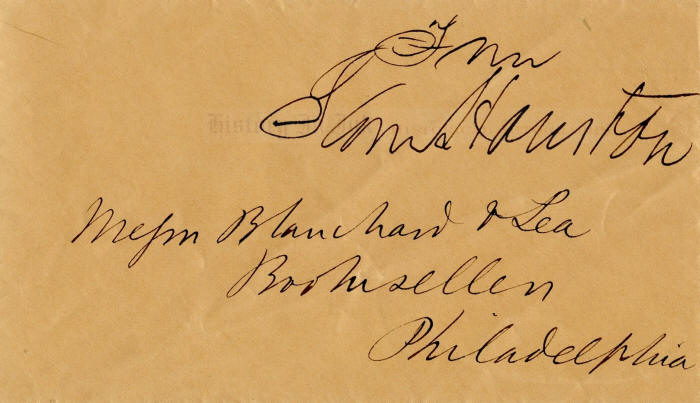 Free
Sam Houston
Messrs Blanchard & Lea
Booksellers
Philadelphia